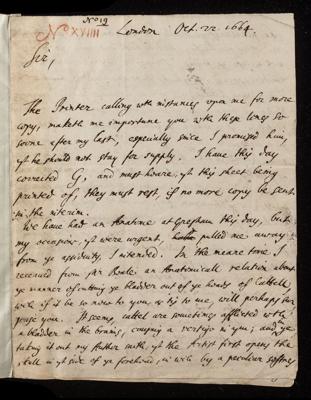 No XVIII
No 19
London Oct. 22 1664.
Sir,
The Printer calling wth instances upon me for more
copy, maketh me importune you with these lines so
soone after my last, especially since I promised him,
yt he should not stay for supply. I have this day
corrected G, and must have yt this sheet being
printed of, they must rest, if no more copy be sent
in the interim.
We have had an Anatome at Gresham this day, but
my occasions, yt were urgent, pulled me away
from ye assiduity I intended. In the meane time I
received from an Anatomicall relation about
ye manner of cutting ye bladder out of ye heads of Cattell,
wch if it be so new to you, as tis to me, will perhaps
please you. It seems, cattel are sometimes afflicted wth
a bladder in the braine, causing a vertigo in ym; and, ye
taking it out my Author saith, yt the Artist first opens the
skull in yt side of ye forehead, in wch by a peculiar softnes